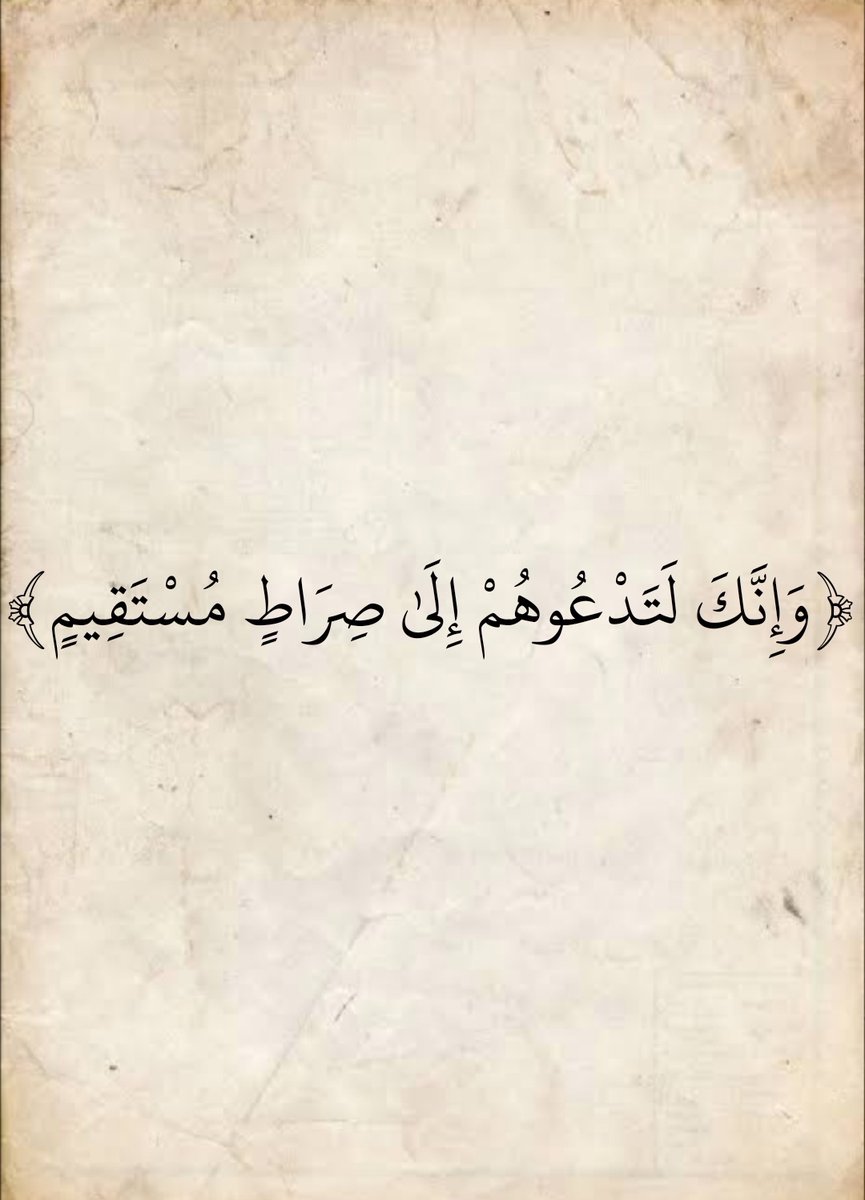 ﴿وَإِنَّكَ لَتَدْعُوهُمْ إِلَىٰ صِرَاطٍ مُسْتَقِيمٍ﴾